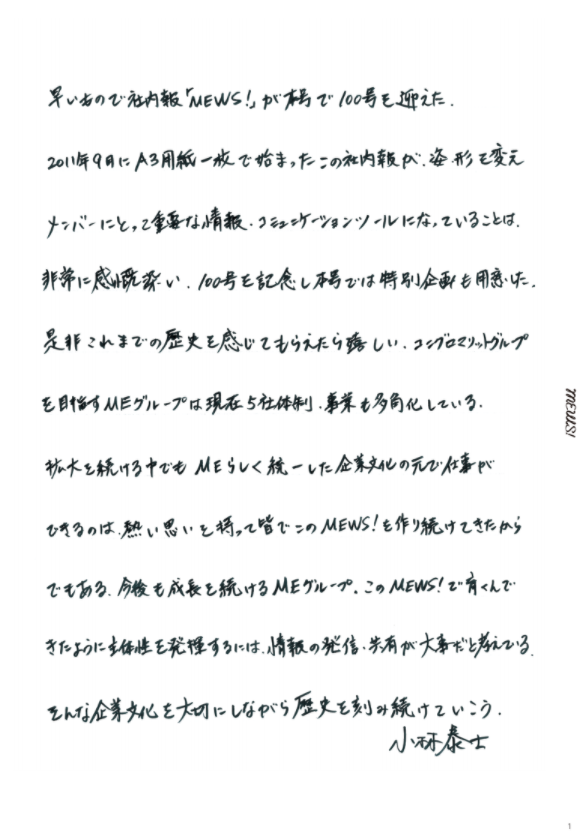 早いもので社内報「MEWS!」が本号で100号を迎えた.
2011年9月にA3用紙一枚で始まったこの社内報が、姿・形を変え
メンバーにとって重要な情報・コミュニケーションツールになっていることは、
非常に感慨深い. 100号を記念し本号では特別企画も用意した.
是非これまでの歴史を感じてもらえたら嬉しい. コングロマリットグループ
を目指すMEグループは現在5社体制、事業も多角化している.
拡大を続ける中でもMEらしく統一した企業文化の元で仕事が
できるのは、熱い思いを持って皆でこのMEWS!を作り続けてきたから
でもある. 今後も成長を続けるMEグループ. このMEWS!で育くんで
きたように主体性を発揮するには、情報の発信・共有が大事だと考えている.
そんな企業文化を大切にしながら歴史を刻み続けていこう.
小林泰士
MEWS!
1